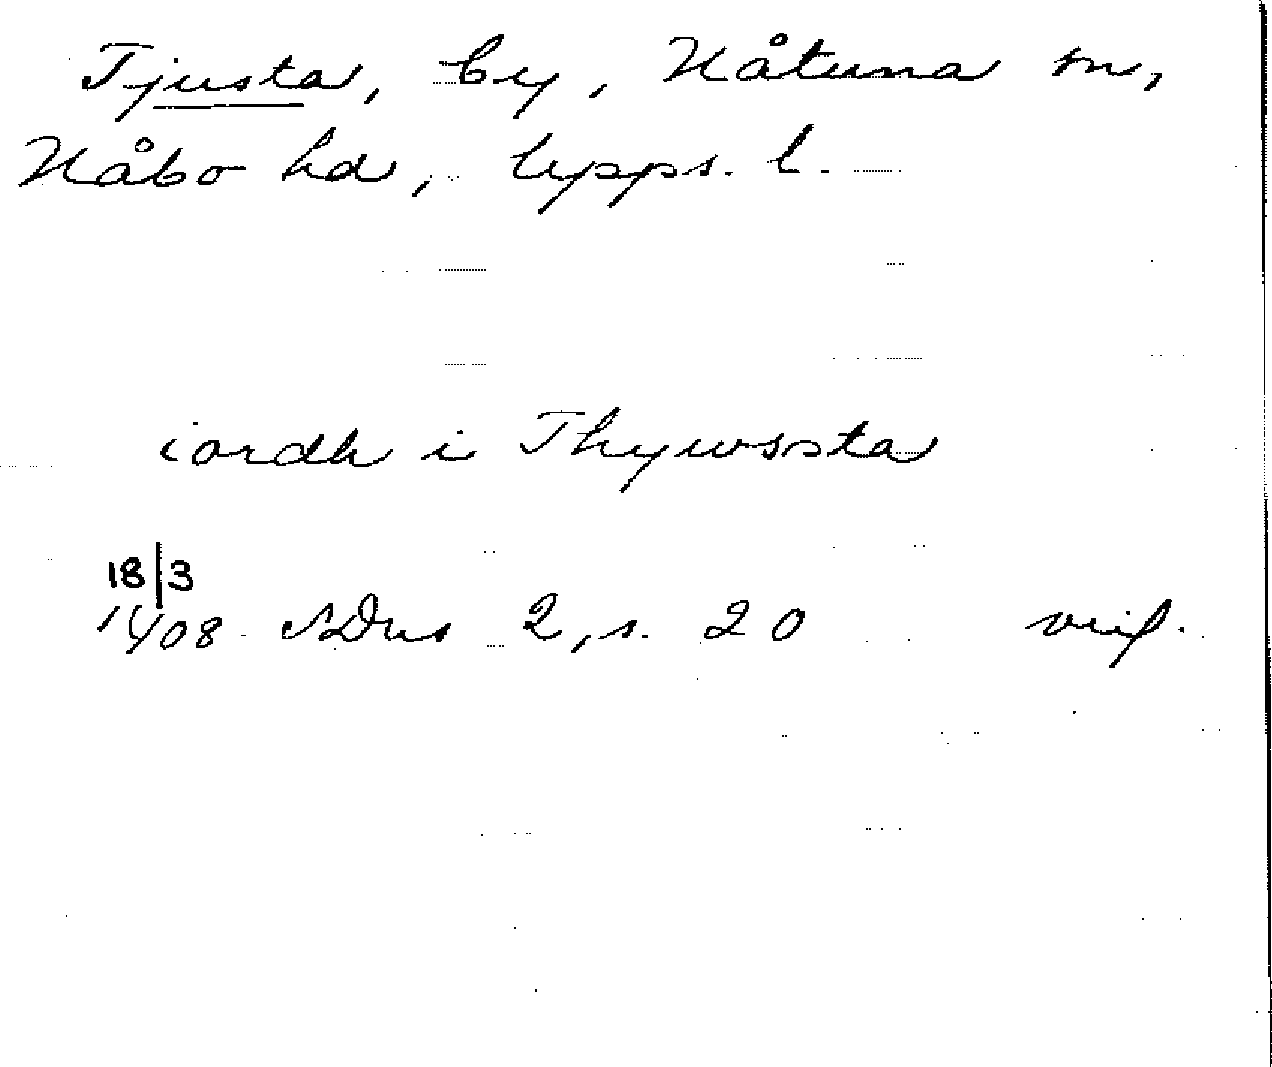 Tjusta, by, Håtuna sn,
Håbo hd, Upps. l.
iordh i Thywssta
18/3
1408 SDns 2, s. 20 avskr.